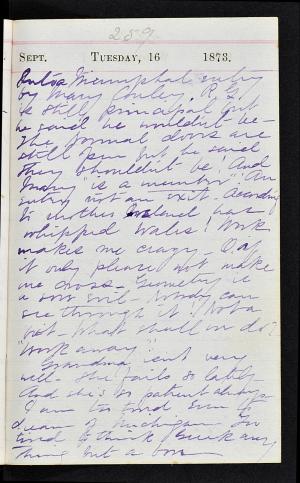 259
SEPT. TUESDAY, 16 1873.
triumphal entry
by Mary Conley. R. G.
is still principal but
he said he wouldn't be -
The formal doors are
still open but he said
they shouldn't be! And
Mary "is a member" An
entry not an exit. According
to another Ireland has
whipped Wales! Work
makes me crazy - O, if
it only please not make
me cross - Geometry is
a sore evil - Nobody can
see through it! Not a
What shall we do?
"Work away"!
Grandma isn't very
well. She fails so lately -
And she's so patient always
I am too tired even to
dream of Michigan Too
tired to think much any
thing but a bore